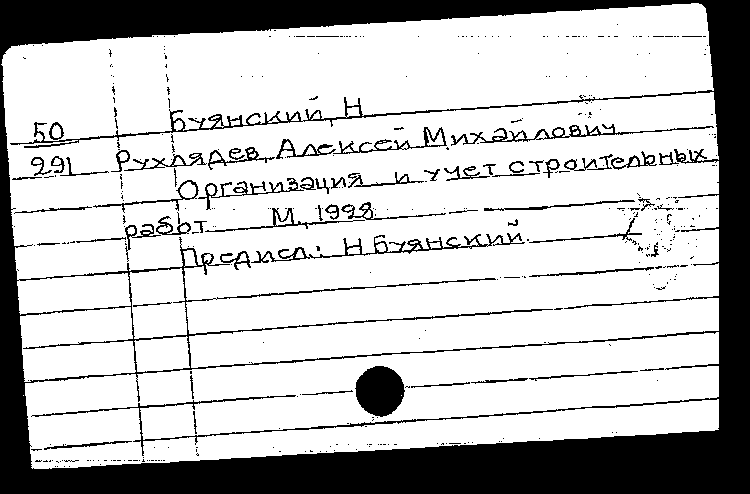 Буянский, Н
50
291 Рухлядев, Алексей Михайлович
Организация и учет строительных
работ. М, 1928.
Предисл.: Н Буянский.